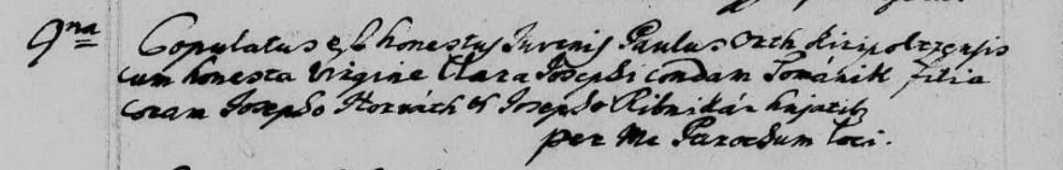 9na Copulatus est honestus Juvenis Paulus Orth Kiripolczensis
cum honesta Virgine Clara Josephi condam Tománik filia
coram Josepho Horváth et Josepho Ribnikár hujatib
per Me Parochum loci.